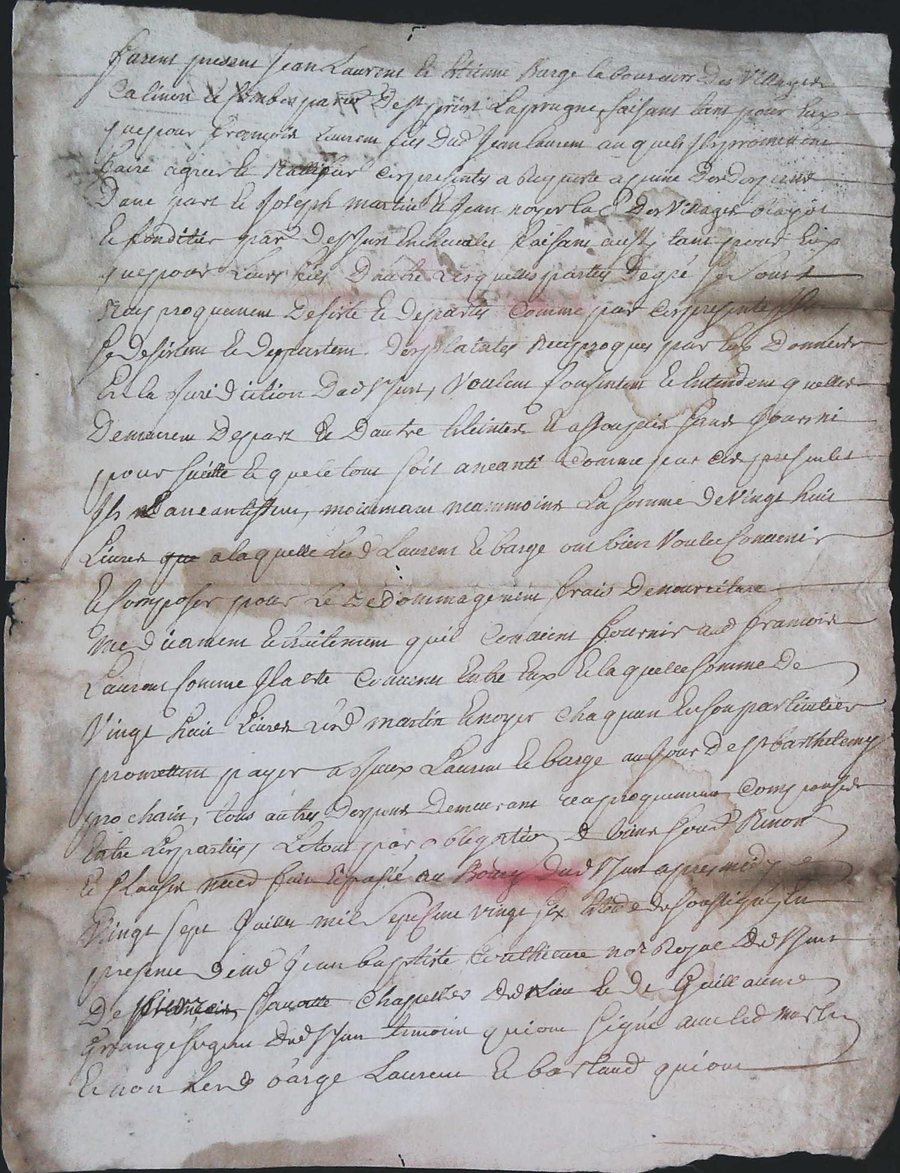 furent present Jean Laurent et Etienne Barge laboureurs Des Villages
paroi De St priest Laprugne faisant tant pour Eux
que pour francois Laurent fils Dud Jean Laurent auquel promettent
faire agreer et Ratiffier ces presentes a la requeste a peine Des Depens
Dune part et Joseph martin et Jean noyer lab Des Villages
et fonditier par De St Just En chevalet faisant aussy tant pour Eux
que pour Leurs fils Dautre Lesquelles parties De gré Se Sont
Reciproquement Desisté et departis Comme par ces presentes Ils
Se desistent et Departent Des plaintes Reciproques par Eux Données
En la Juridiction Dud St Just, Voulent Consentent et Entendent quelles
Demeurent De part et Dautre Eteintes et assoupies Sans
pour Suitte et que le tout Soit aneanti Comme par ces presentes
Ils L aneantissent, moiennant neanmoins La somme De Vingt huit
Livres que a laquelle Led Laurent et barge ont bien Voulu Convenir
et Composer pour Le Dedommagement frais De nourriture
medicament et traitement quil Convient fournir aud francois
Laurent Comme Il a ete Convenu Entre Eux Et laquelle Somme De
Vingt huit Livres Lesd martin et noyer chaquun En Son particulier
promettent payer a Iceux Laurent et barge au Jour De St barthelemy
prochain, tous autres Depens Demeurant reciproquement Compensés
Entre Les parties, Le tout par obligation De biens Soumd Renon
et Clauses fait et passé au Bourg Dud St Just apres midy Le
Vingt sept Juillet mil Sept Cent Vingt Six et De Soussigné En
presence De Jean baptiste notr Royal Dud St Just
De francois chapellier Dud Lieu et De Guillaume
Grange Dud St Just temoins qui ont Signé avec led martin
et non Lesd barge Laurent et qui ont